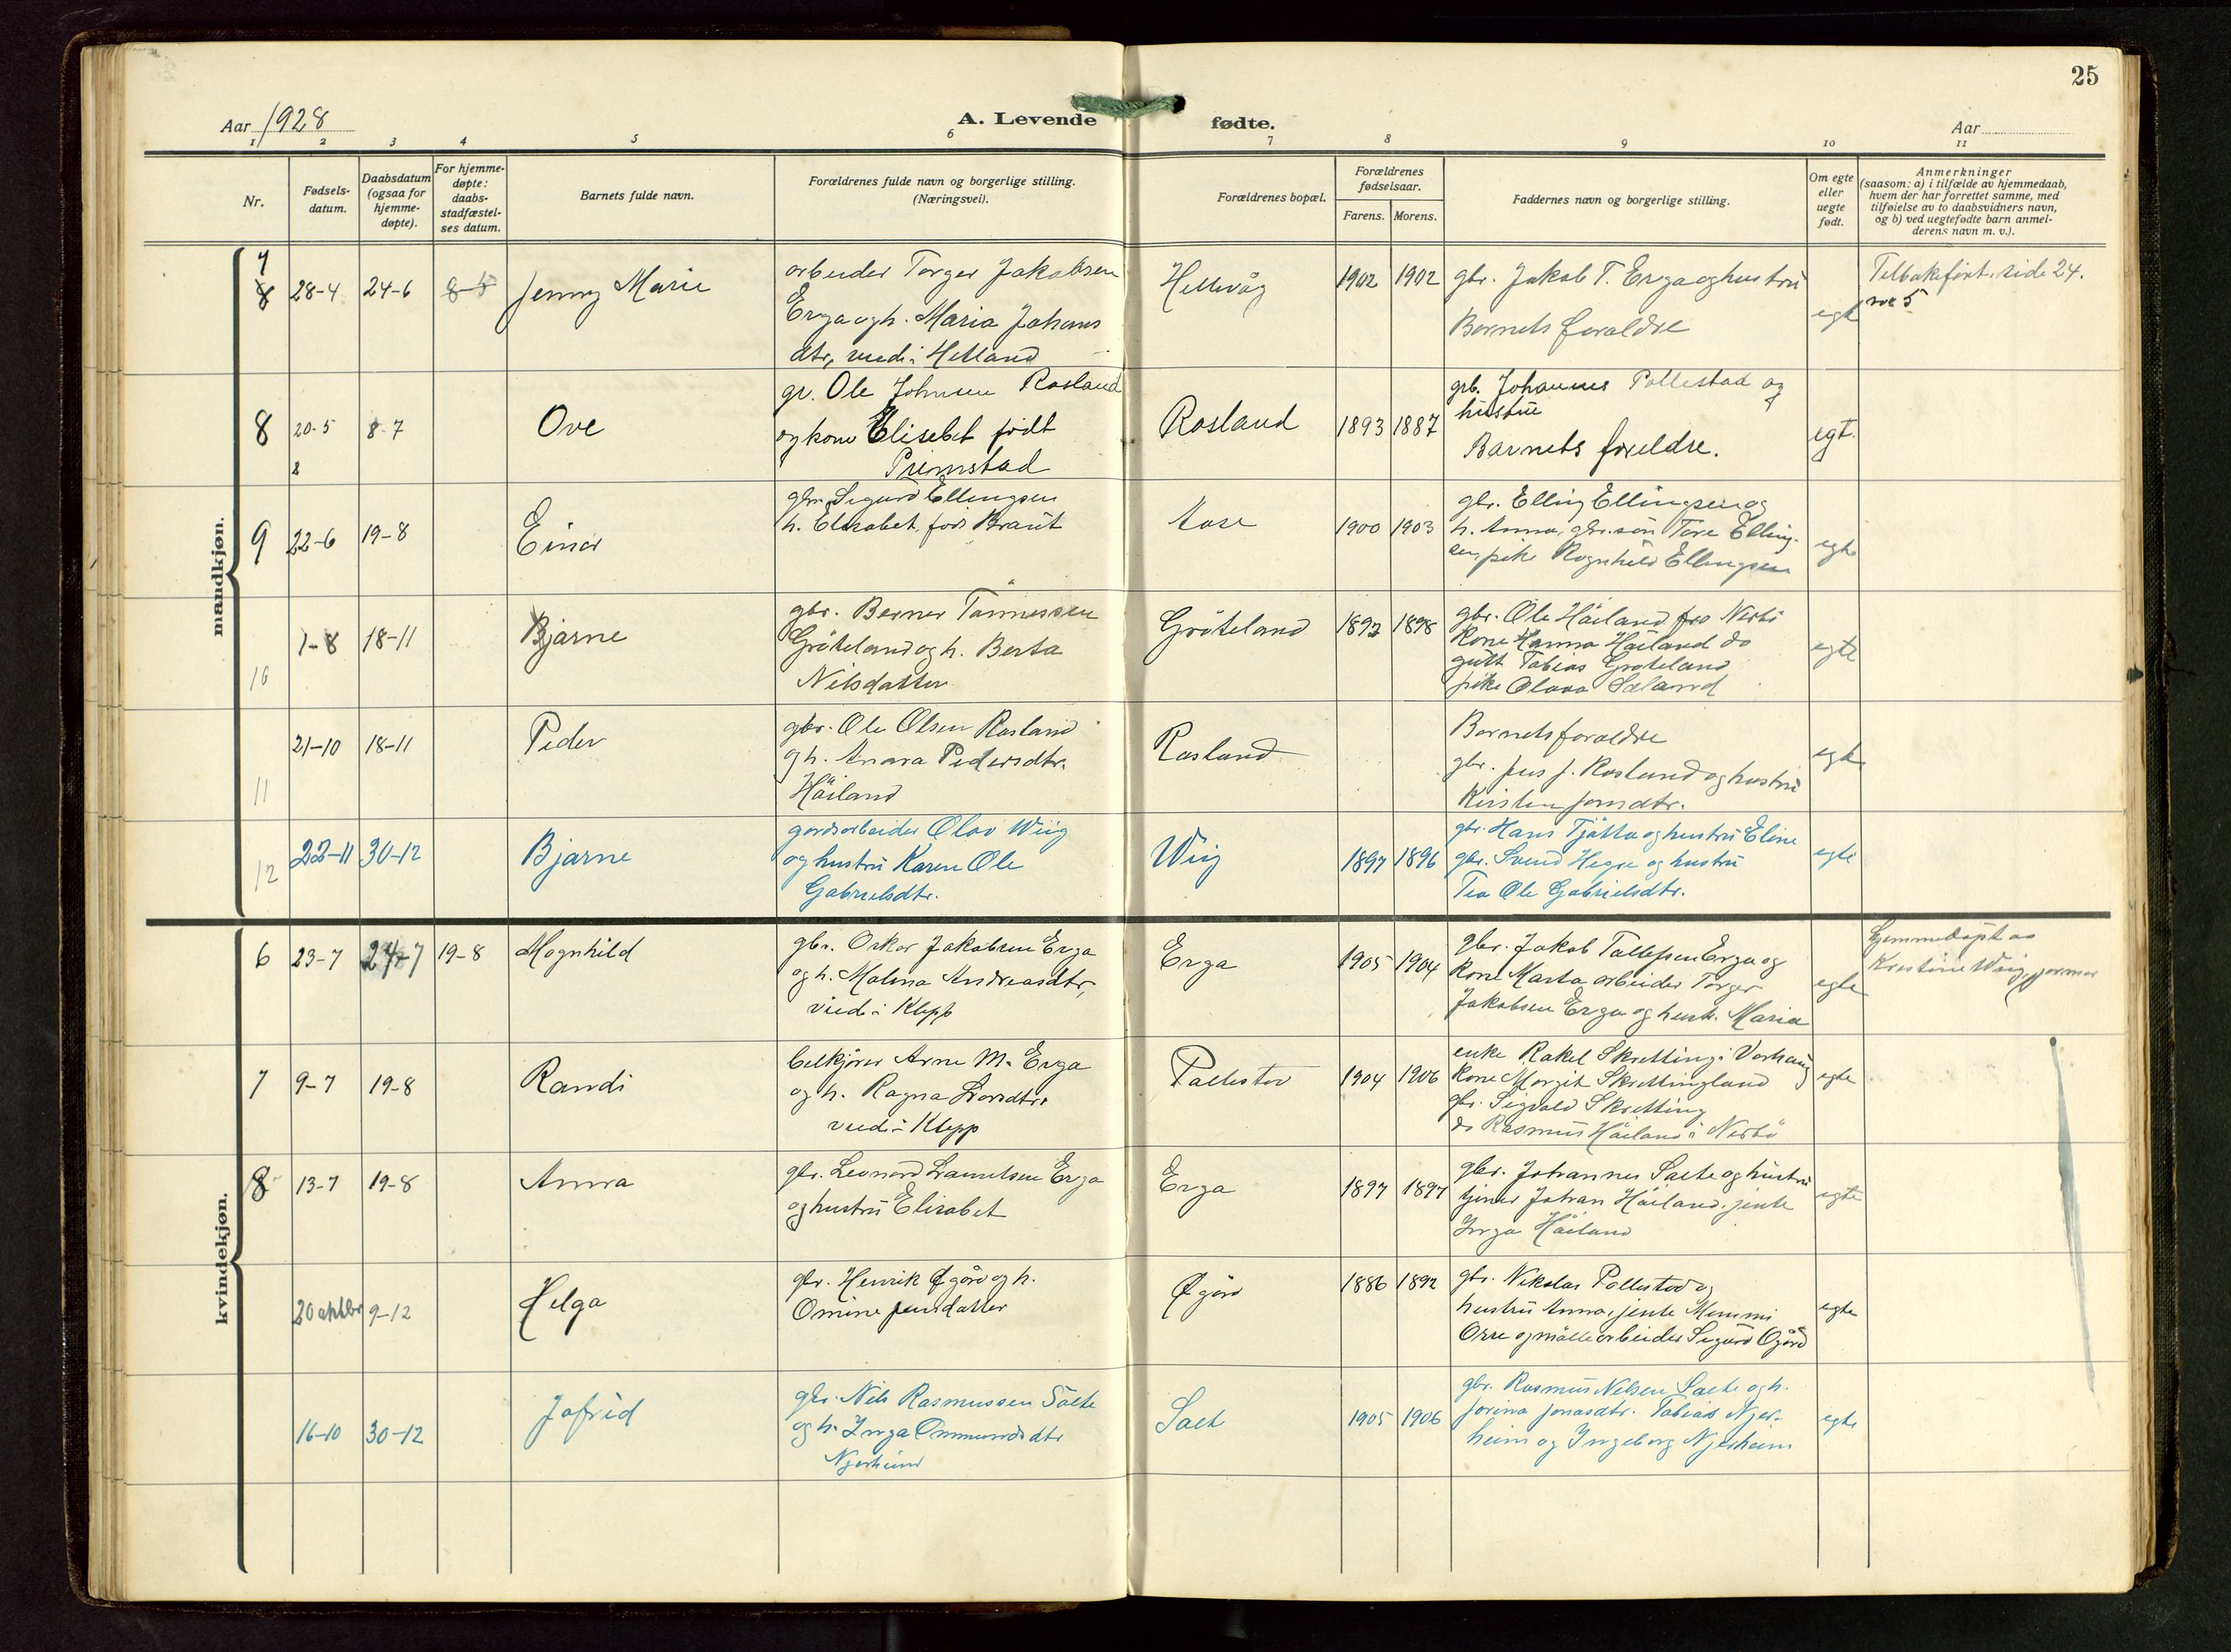 25
Aar 1928
A. Levende fødte.
Aar
1 2 3 4 5 6 7 8 9 10 11
Nr.
Fødsels-
datum.
Daabsdatum
(ogsaa for
hjemme-
døpte).
For hjemme-
døpte:
daabs-
stadfæstel-
ses datum.
Barnets fulde navn.
Forældrenes fulde navn og borgerlige stilling.
(Næringsvei).
Forældrenes bopæl.
Forældrenes
fødselsaar.
Farens. Morens.
Faddernes navn og borgerlige stilling.
Om egte
eller
uegte
født.
Anmerkninger
(saasom: a) i tilfælde av hjemmedaab,
hvem der har forrettet samme, med
tilføielse av to daabsvidners navn,
og b) ved uegtefødte barn anmel-
derens navn m. v.).
mandkjøn.
7
8 28-4 24-6 8-5 Jenny Marie
arbeider Torger Jakobsen
Erga og h. Maria Johans
dtr, viedi Hetland
1902 1902
gbr. Jakob T. Erga og hustru
Barnets foraldre
egte
Tilbakeført. side 24.
nr 5
8 20-5 8-7 Ove
2
gr. Ole Johnsen Rosland
og kone Elisebet født
Primstad
Rosland
1893 1887
grb. Johannes Pollestad og
hustru
Barnets foreldre.
egt.
9 22-6 19-8 Einar
gbr. Sigurd Ellingsen
h. Elisabet, født Braut
Aase
1900 1903
gbr. Elling Ellingsen og
h. Anna, gbr.søn Tore Elling-
sen, pike Ragnhild Ellingsen
egte
10 1-8 18-11 Bjarne
gbr. Berner Tønnessen
Grøteland og h. Berta
Nilsdatter
Grøteland
1892 1898
gbr. Ole Håiland fra Nerbø
Kone Hanna Håiland do
gutt Tobias Grøteland
pike Olava Sæland
egte
11 21-10 18-11 Peder
gbr. Ole Olsen Rosland
g h. Anna Pedersdtr.
Håiland
Rosland
Barnets foraldre
gbr. Jens J. Rosland og hustru
Kirsten Jonsdtr.
egte
12 22-11 30-12 Bjarne
gardsarbeider Olav Wiig
og hustru Karen Ole
Gabrielsdtr.
Wiig
1897 1896
gbr. Hans Tjøtta og hustru Eline
gbr. Svend Hegre og hustru
Tea Ole Gabrielsdtr.
egte
kvindekjøn.
6 23-7 24-7 19-8 Magnhild
gbr. Oskar Jakobsen Erga
og h. Malena Andreasdtr,
viedi Klepp
Erga
1905 1904
gbr. Jakob Tallefsen Erga og
Kone Marta arbeider Torger
Jakobsen Erga og hustr. Maria
egte
Hjemmedøpt av
Kristine Wiig, jormor
7 9-7 19-8 Randi
bilkjører Arne M. Erga
og h. Ragna Larsdtr.
viedi Klepp
Pollestad
1904 1906
enke Rakel Skretting i Varhaug
Kone Margit Skrettingland
gbr. Sigvald Skretting
do Rasmus Håiland i Nerbø
egte
8 13-7 19-8 Anna
gbr. Leonard Lauritsen Erga
og hustru Elisabet
Erga
1897 1897
gbr. Johannes Salte og hustru
tjener Johan Håiland, jente
Inga Håiland
egte
20 oktbr 9-12 Helga
gbr. Henrik Øgård og h.
Omine Jensdatter
Øgård
1886 1892
gbr. Nikolai Pollestad og
hustru Anna, jente Mimmi
Orre og mølle arbeider Sigurd Øgård
egte
16-10 30-12 Jofrid
gbr. Nils Rasmussen Salte
og h. Inga Ommundsdtr
Njerheim
Salte
1905 1906
gbr. Rasmus Nilsen Salte og h.
Jorina Jonasdtr. Tobias Njer-
heim og Ingeborg Njerheim
egte